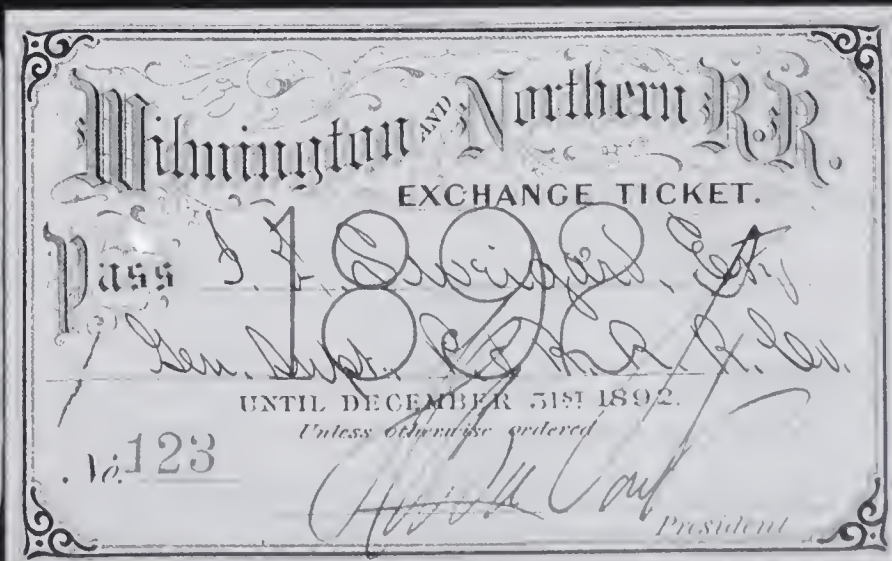 Wilmington AND Northern R.R.
EXCHANGE TICKET.
1892
Pass
Gen. Supt. R. R. Co.
UNTIL DECEMBER 31ST 1892.
Unless otherwise ordered
No. 123
President